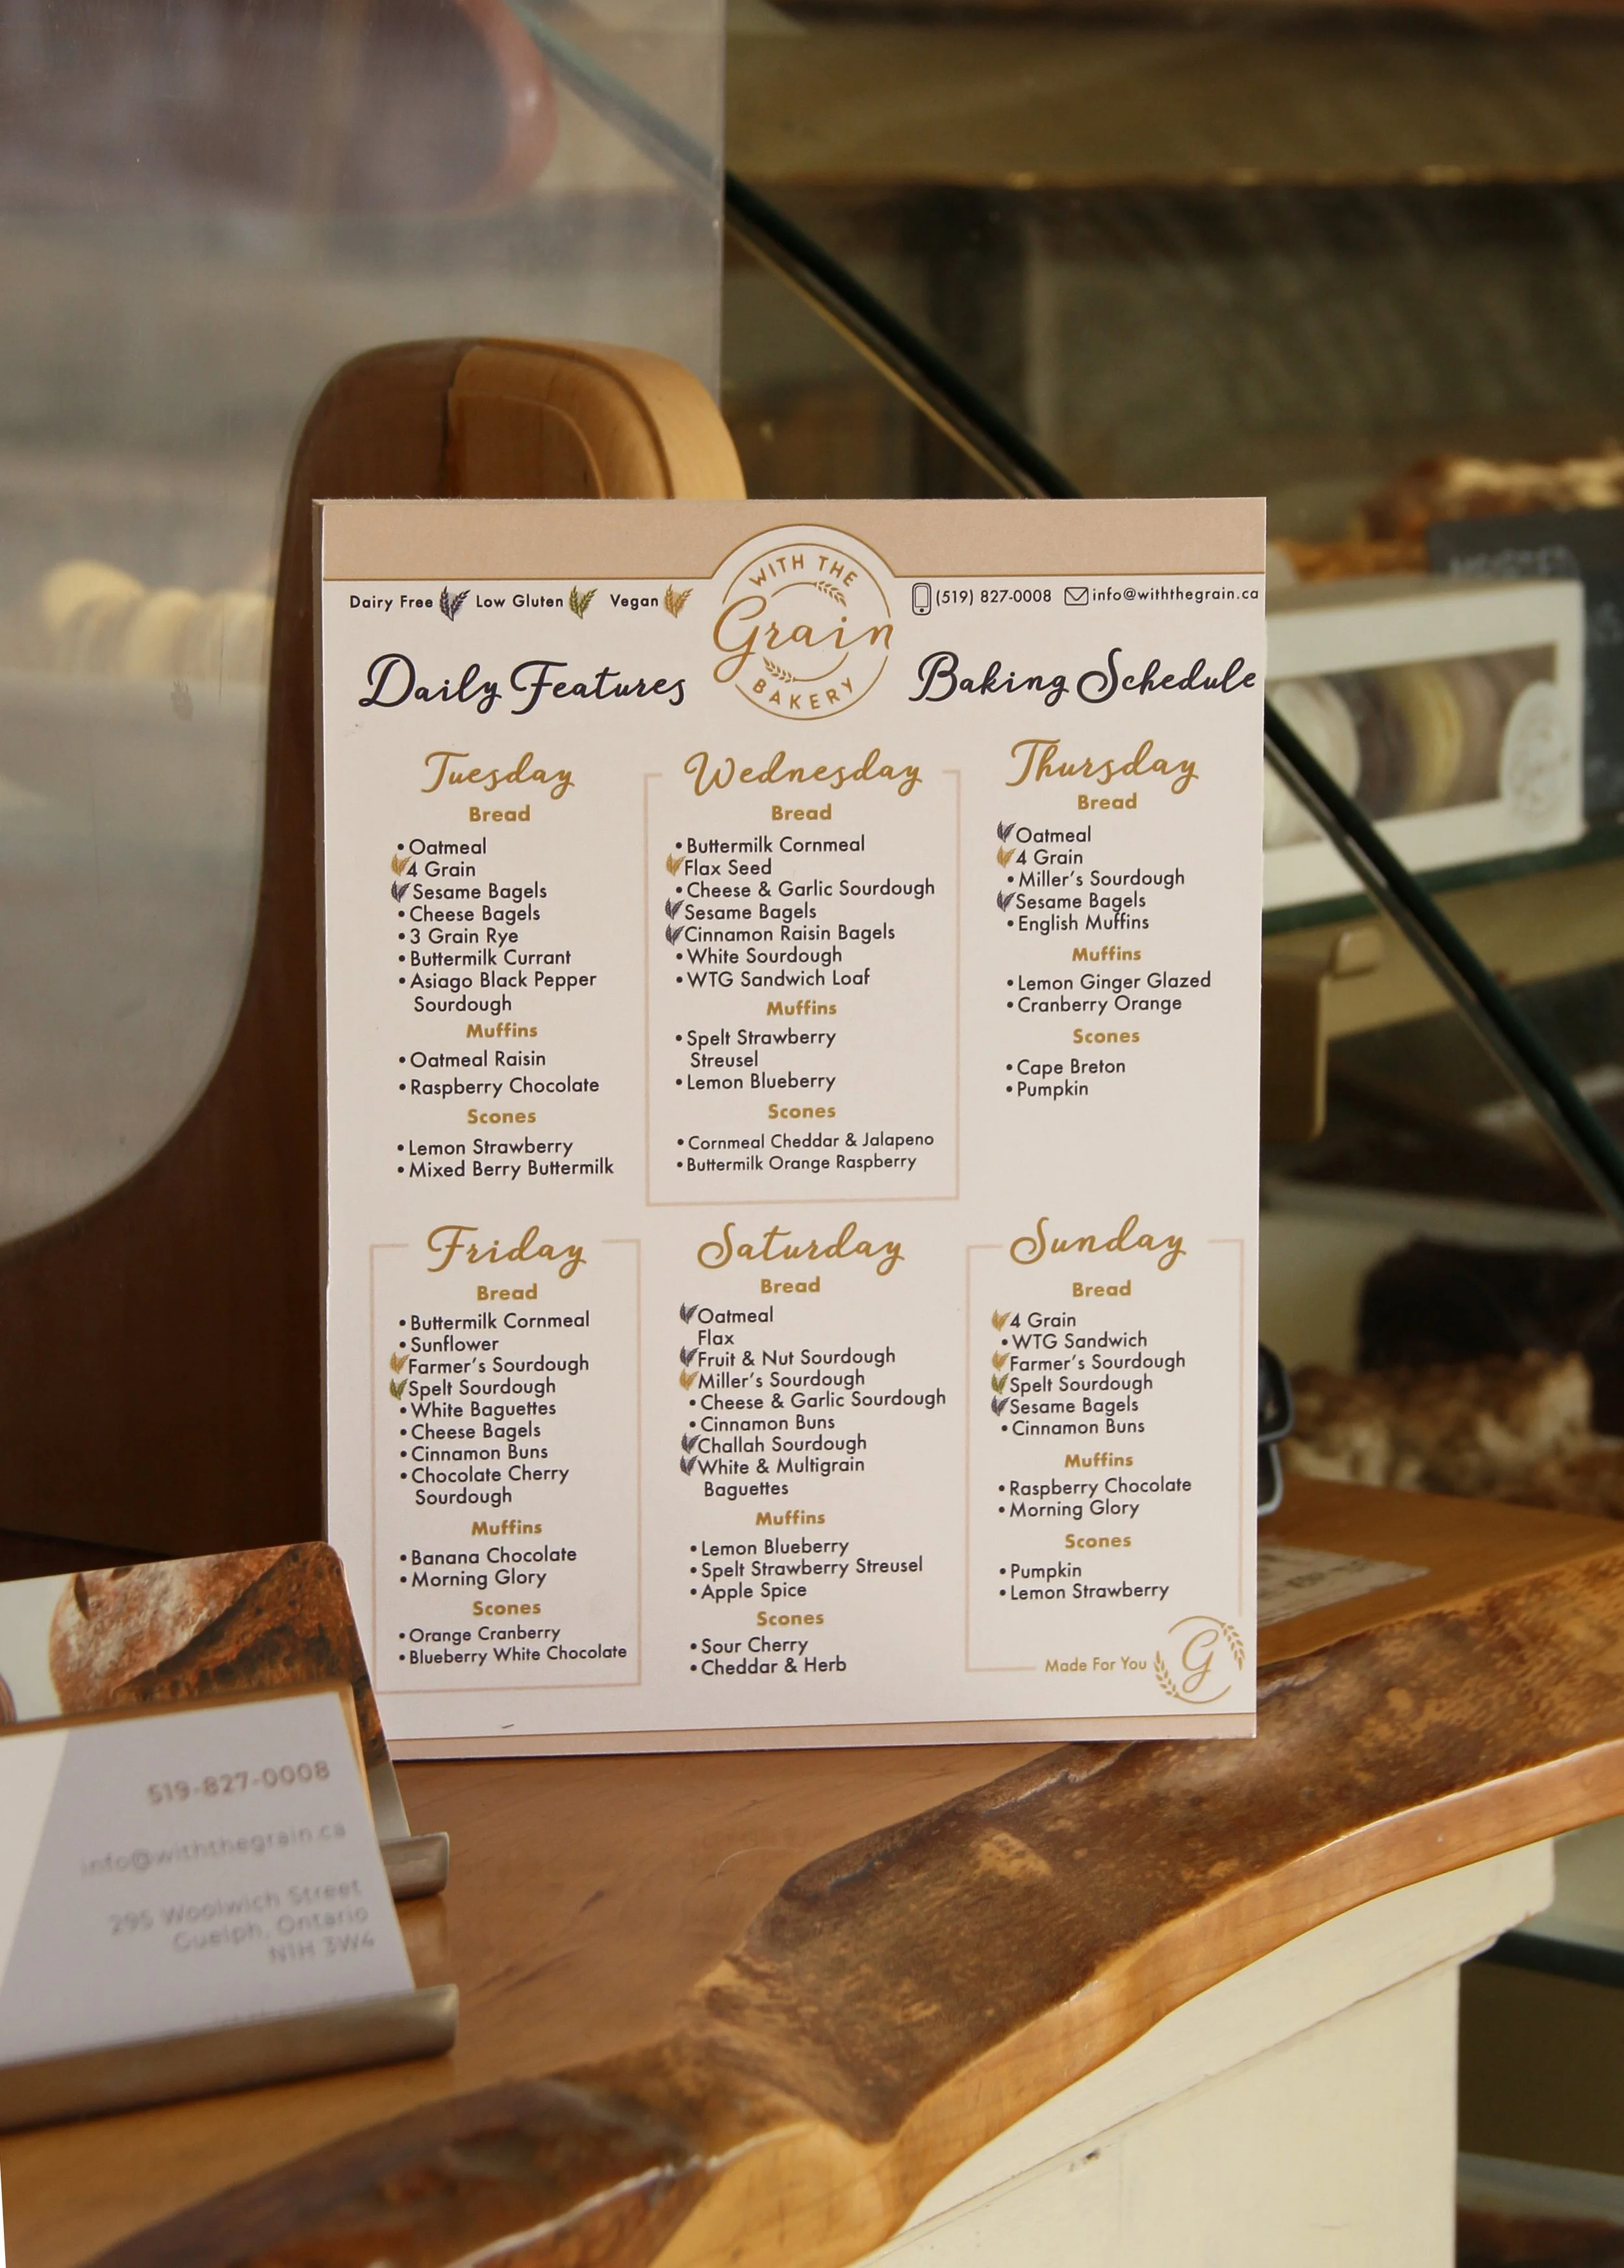 WITH THE
Grain
BAKERY
Dairy Free Low Gluten Vegan
(519) 827-0008 info@withthegrain.ca
Daily Features
Baking Schedule
Tuesday
Bread
• Oatmeal
4 Grain
Sesame Bagels
• Cheese Bagels
• 3 Grain Rye
• Buttermilk Currant
• Asiago Black Pepper
Sourdough
Muffins
• Oatmeal Raisin
• Raspberry Chocolate
Scones
• Lemon Strawberry
• Mixed Berry Buttermilk
Wednesday
Bread
• Buttermilk Cornmeal
Flax Seed
• Cheese & Garlic Sourdough
Sesame Bagels
Cinnamon Raisin Bagels
• White Sourdough
• WTG Sandwich Loaf
Muffins
• Spelt Strawberry
Streusel
• Lemon Blueberry
Scones
• Cornmeal Cheddar & Jalapeno
• Buttermilk Orange Raspberry
Thursday
Bread
Oatmeal
4 Grain
• Miller's Sourdough
Sesame Bagels
• English Muffins
Muffins
• Lemon Ginger Glazed
• Cranberry Orange
Scones
• Cape Breton
• Pumpkin
Friday
Bread
• Buttermilk Cornmeal
• Sunflower
Farmer's Sourdough
Spelt Sourdough
• White Baguettes
• Cheese Bagels
• Cinnamon Buns
• Chocolate Cherry
Sourdough
Muffins
• Banana Chocolate
• Morning Glory
Scones
• Orange Cranberry
• Blueberry White Chocolate
Saturday
Bread
Oatmeal
Flax
Fruit & Nut Sourdough
Miller's Sourdough
• Cheese & Garlic Sourdough
• Cinnamon Buns
Challah Sourdough
White & Multigrain
Baguettes
Muffins
• Lemon Blueberry
• Spelt Strawberry Streusel
• Apple Spice
Scones
• Sour Cherry
• Cheddar & Herb
Sunday
Bread
4 Grain
• WTG Sandwich
Farmer's Sourdough
Spelt Sourdough
Sesame Bagels
• Cinnamon Buns
Muffins
• Raspberry Chocolate
• Morning Glory
Scones
• Pumpkin
• Lemon Strawberry
Made For You
G
519-827-0008
info@withthegrain.ca
295 Woolwich Street
Guelph, Ontario
N1H 3W4